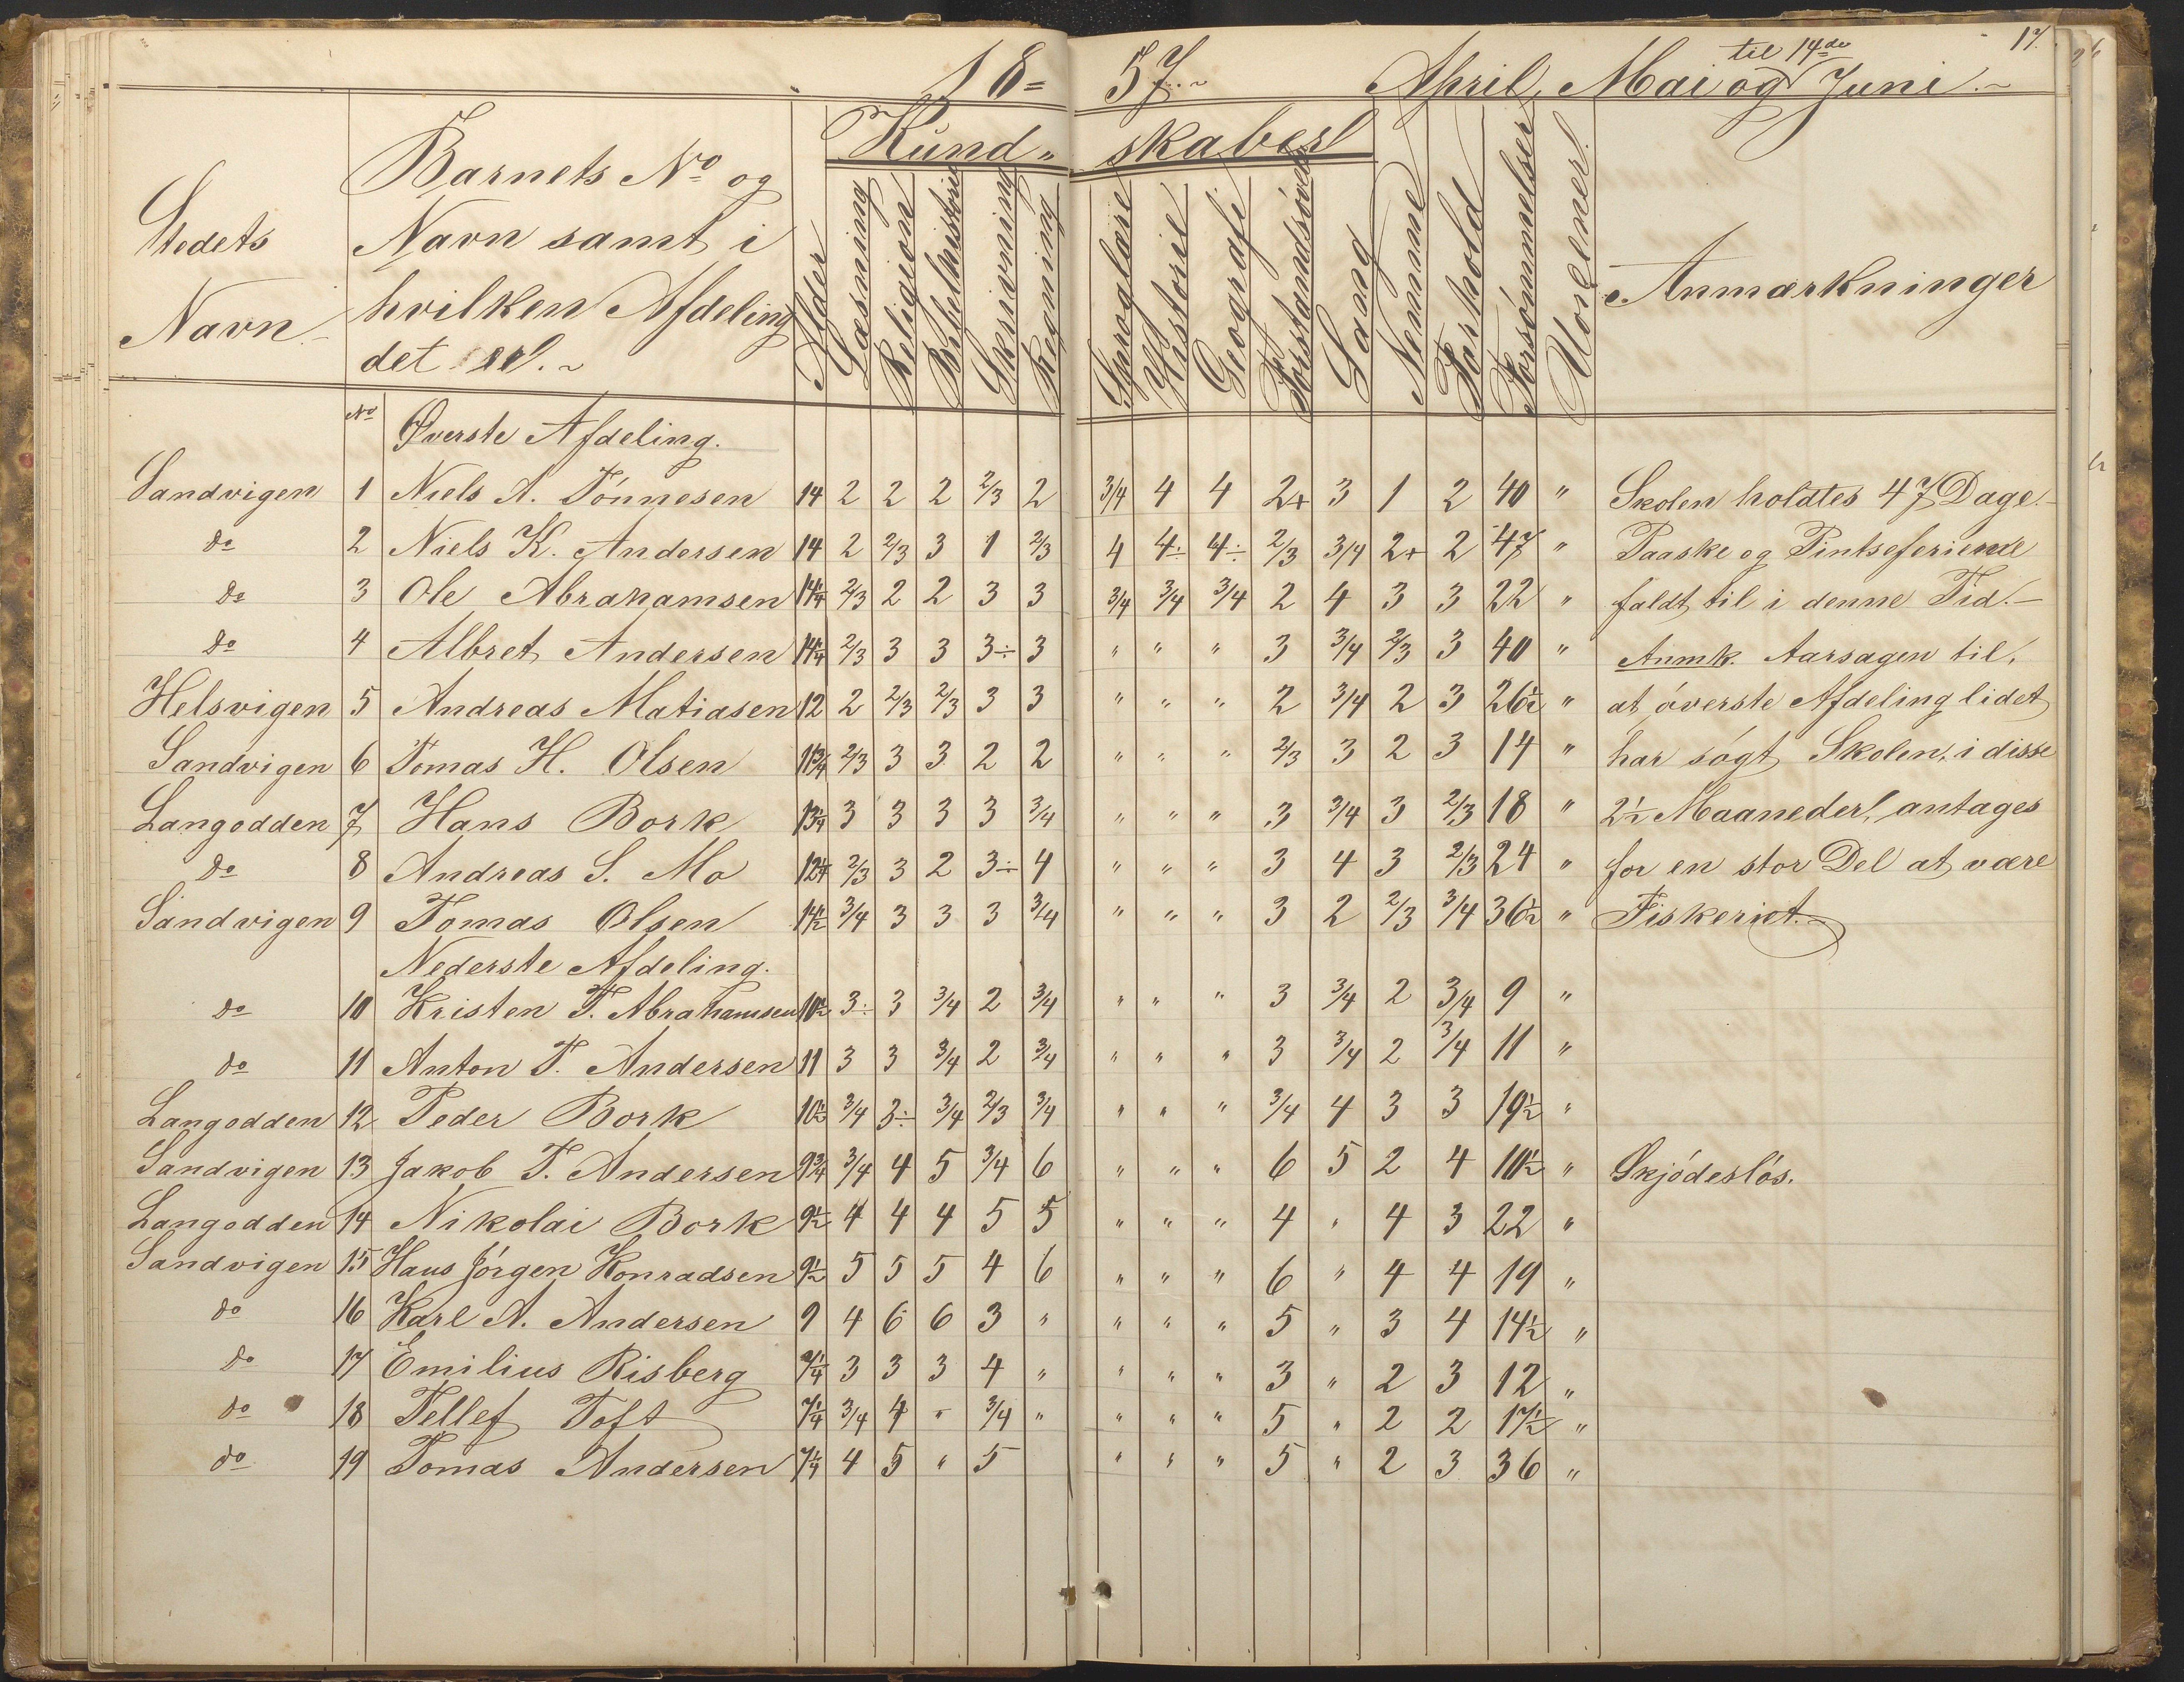 17.
18= 57.~ April, Mai og til 14de Juni.~
Stedets Navn
Barnets No og Navn samt i hvilken Afdeling det er.~
Alder
Kund= skaber
Læsning
Religion
Bibelhistorie
Skrivning
Regning
Sproglære
Historie
Geografi
Forstandsøvelse
Sang
Nemme
Forhold
Forsømmelser
Uordener.
Anmærkninger
No Øverste Afdeling.
Sandvigen 1 Niels A. Tönnesen 14 2 2 2 2/3 2 3/4 4 4 2+ 3 1 2 40 " Skolen holdtes 47 Dage.
do 2 Niels K. Andersen 14 2 2/3 3 1 2/3 4 4÷ 4÷ 2/3 3/4 2+ 2 47 " Paaske og Pintseferierne
do 3 Ole Abrahamsen 14 1/4 2/3 2 2 3 3 3/4 3/4 3/4 2 4 3 3 22 " faldt til i denne Tid.—
do 4 Albret Andersen 14 1/4 2/3 3 3 3÷ 3 " " " 3 3/4 2/3 3 40 " Anmk. Aarsagen til,
Helsvigen 5 Andreas Matiasen 12 2 2/3 2/3 3 3 " " " 2 3/4 2 3 26 1/2 " at överste Afdeling lidet
Sandvigen 6 Tomas H. Olsen 11 3/4 2/3 3 3 2 2 " " " 2/3 3 2 3 14 " har sögt Skolen, i disse
Langodden 7 Hans Bork 13 1/4 3 3 3 3 3/4 " " " 3 3/4 3 2/3 18 " 2 1/2 Maaneder, antages
do 8 Andreas S. Mo 12 1/4 2/3 3 2 3÷ 4 " " " 3 4 3 2/3 24 " for en stor Del at være
Sandvigen 9 Tomas Olsen 14 1/2 3/4 3 3 3 3/4 " " " 3 2 2/3 3/4 36 1/2 " Fiskeriet.
Nederste Afdeling.
do 10 Kristen T. Abrahamsen 10 1/2 3÷ 3 3/4 2 3/4 " " " 3 3/4 2 3/4 9 "
do 11 Anton T. Andersen 11 3 3 3/4 2 3/4 " " " 3 3/4 2 3/4 11 "
Langodden 12 Peder Bork 10 1/2 3/4 3÷ 3/4 2/3 3/4 " " " 3/4 4 3 3 19 1/2 "
Sandvigen 13 Jakob T. Andersen 9 3/4 3/4 4 5 3/4 6 " " " 6 5 2 4 10 1/2 " Skjödeslös.
Langodden 14 Nikolai Bork 9 1/2 4 4 4 5 5 " " " 4 " 4 3 22 "
Sandvigen 15 Hans Jörgen Konradsen 9 1/2 5 5 5 4 6 " " " 6 " 4 4 19 "
do 16 Karl A. Andersen 9 4 6 6 3 " " " " 5 " 3 4 14 1/2 "
do 17 Emilius Risberg 7 1/4 3 3 3 4 " " " " 3 " 2 3 12 "
do 18 Tellef Toft 7 1/4 3/4 4 " 3/4 " " " " 5 " 2 2 17 1/2 "
do 19 Tomas Andersen 7 1/4 4 5 " 5 " " " 5 " 2 3 36 "